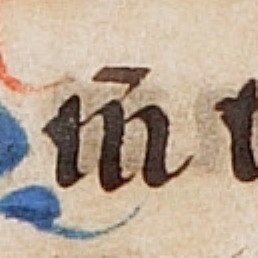 m̄ t